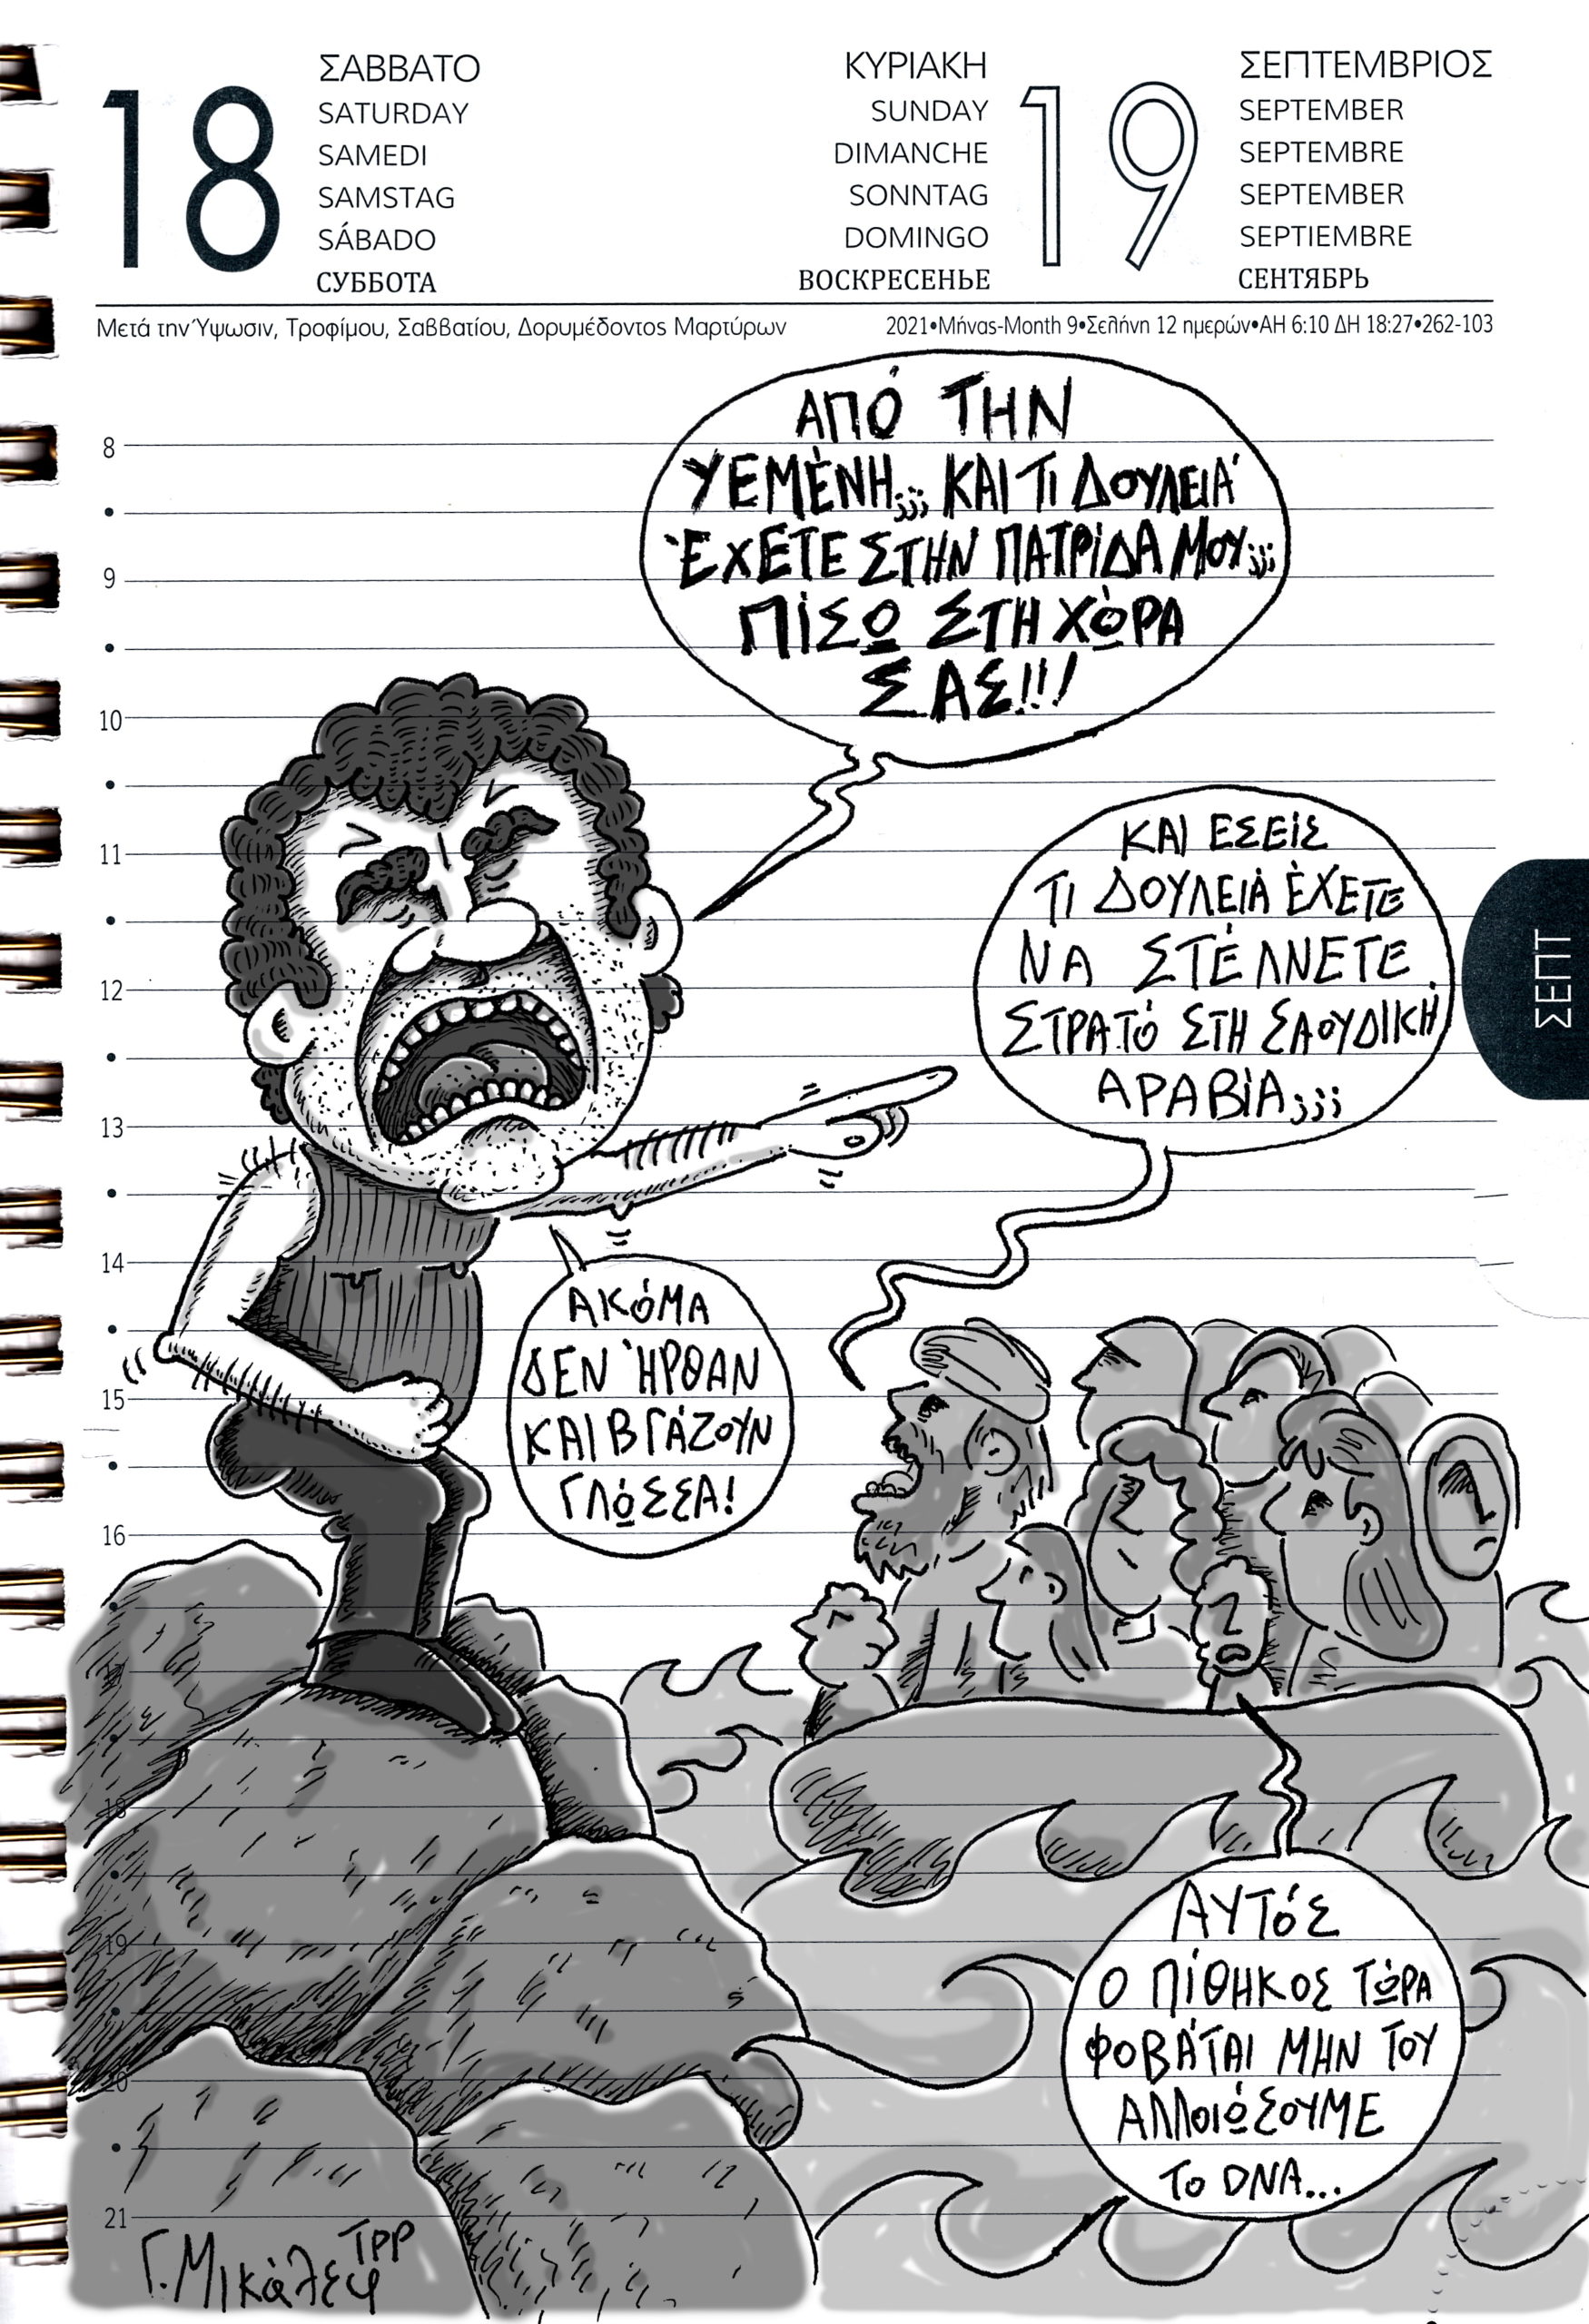 18
ΣΑΒΒΑΤΟ
SATURDAY
SAMEDI
SAMSTAG
SÁBADO
СУББОТА
ΚΥΡΙΑΚΗ
SUNDAY
DIMANCHE
SONNTAG
DOMINGO
ВОСКРЕСЕНЬЕ
19
ΣΕΠΤΕΜΒΡΙΟΣ
SEPTEMBER
SEPTEMBRE
SEPTEMBER
SEPTIEMBRE
СЕНТЯБРЬ
Μετά την Ύψωσιν, Τροφίμου, Σαββατίου, Δορυμέδοντος Μαρτύρων
2021•Μήνας-Month 9•Σελήνη 12 ημερών•ΑΗ 6:10 ΔΗ 18:27•262-103
ΑΠΌ ΤΗΝ
ΥΕΜΈΝΗ;;; ΚΑΙ ΤΙ ΔΟΥΛΕΙΆ
ΈΧΕΤΕ ΣΤΗΝ ΠΑΤΡΊΔΑ ΜΟΥ;;;
ΠΊΣΩ ΣΤΗ ΧΏΡΑ
ΣΑΣ!!!
ΚΑΙ ΕΣΕΊΣ
ΤΙ ΔΟΥΛΕΙΆ ΈΧΕΤΕ
ΝΑ ΣΤΈΛΝΕΤΕ
ΣΤΡΑΤΌ ΣΤΗ ΣΑΟΥΔΙΚΉ
ΑΡΑΒΊΑ;;;
ΑΚΌΜΑ
ΔΕΝ ΉΡΘΑΝ
ΚΑΙ ΒΓΆΖΟΥΝ
ΓΛΏΣΣΑ!
ΑΥΤΌΣ
Ο ΠΊΘΗΚΟΣ ΤΏΡΑ
ΦΟΒΆΤΑΙ ΜΗΝ ΤΟΥ
ΑΛΛΟΙΏΣΟΥΜΕ
ΤΟ DNA...
ΣΕΠΤ
8
9
10
11
12
13
14
15
16
17
18
19
20
21
Γ. Μικάλεφ
TPP